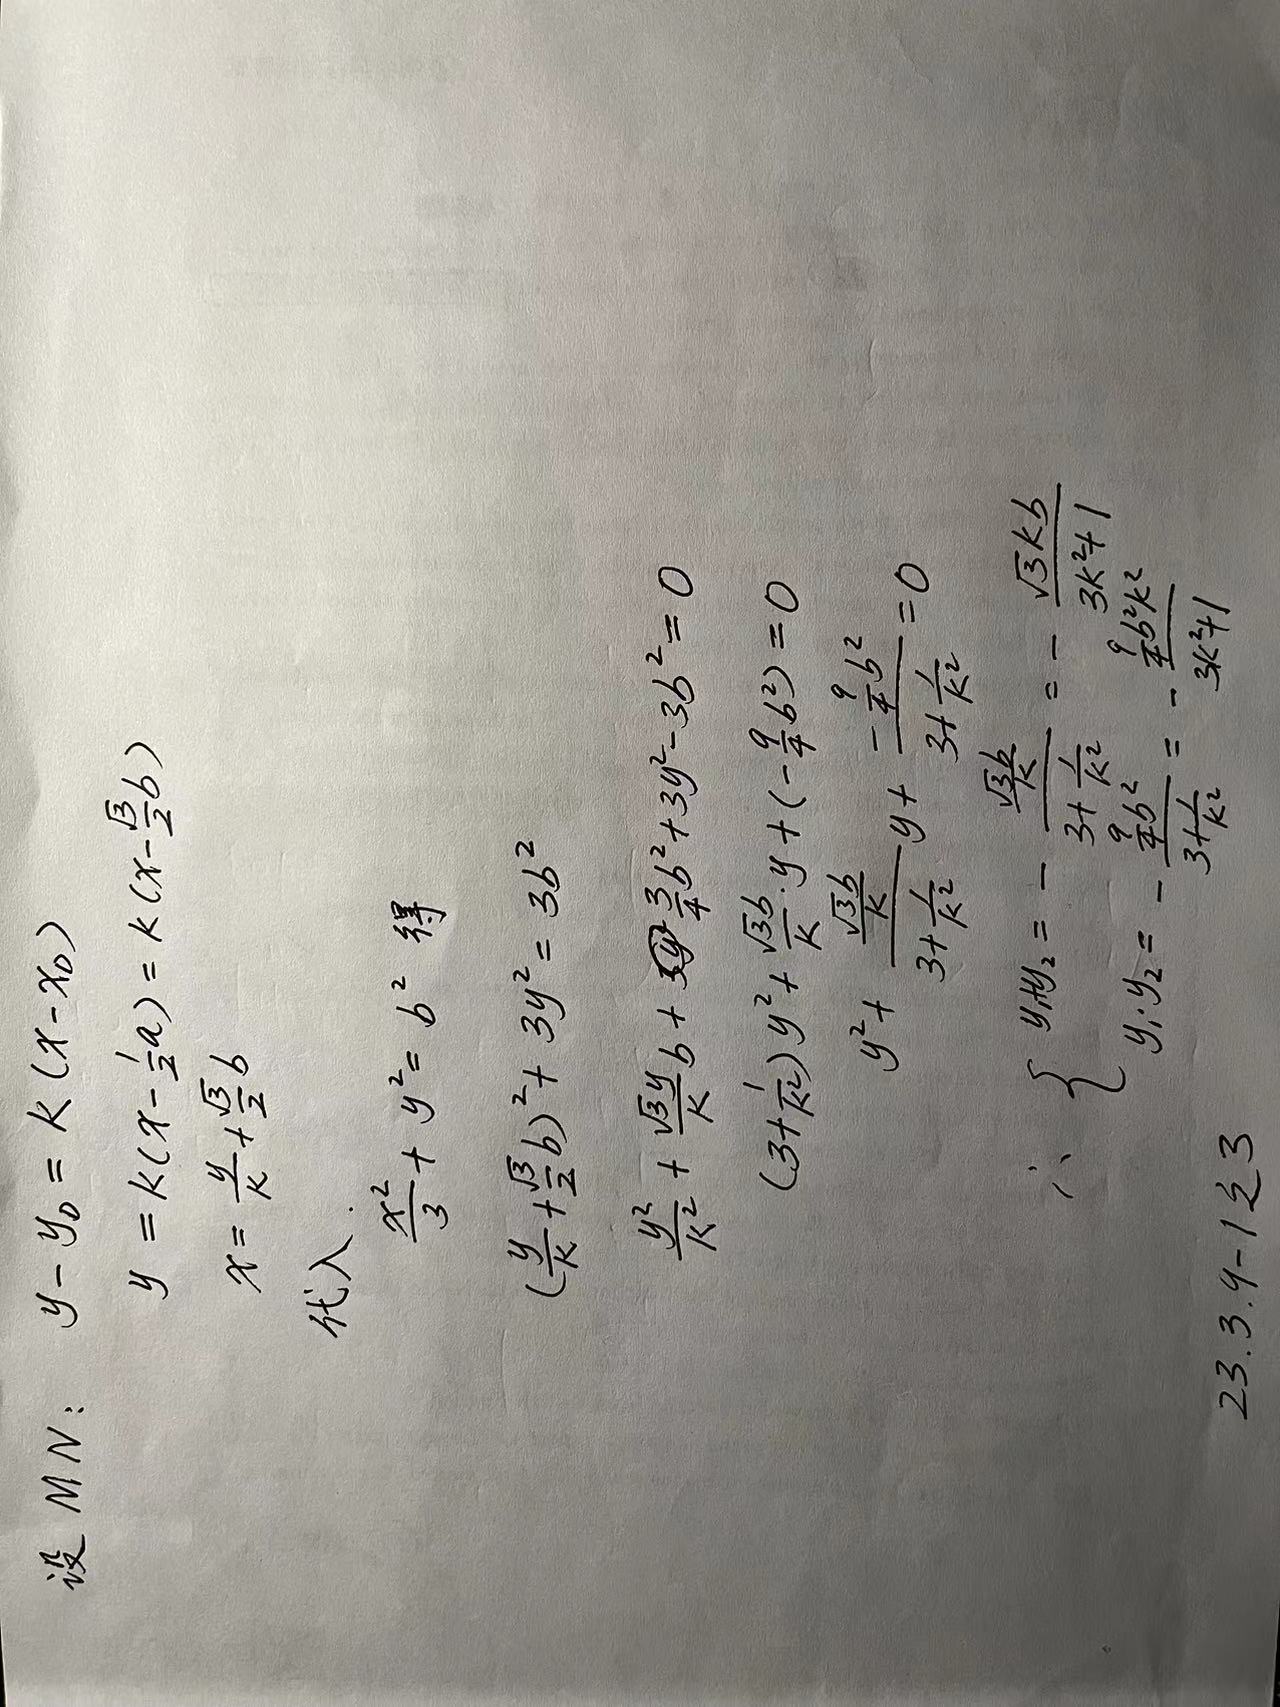 设 MN: y-y₀=k(x-x₀)
y=k(x-\frac{1}{2}a)=k(x-\frac{√3}{2}b)
x=\frac{y}{k}+\frac{√3}{2}b
代入
\frac{x²}{3}+y²=b² 得
(\frac{y}{k}+\frac{√3}{2}b)²+3y²=3b²
\frac{y²}{k²}+\frac{√3y}{k}b+\frac{3}{4}b²+3y²-3b²=0
(3+\frac{1}{k²})y²+\frac{√3b}{k}·y+(-\frac{9}{4}b²)=0
y²+\frac{\frac{√3b}{k}}{3+\frac{1}{k²}}y+\frac{-\frac{9}{4}b²}{3+\frac{1}{k²}}=0
∴ { y₁+y₂=-\frac{\frac{√3b}{k}}{3+\frac{1}{k²}}=-\frac{√3kb}{3k²+1}
y₁·y₂=-\frac{\frac{9}{4}b²}{3+\frac{1}{k²}}=-\frac{\frac{9}{4}b²k²}{3k²+1}